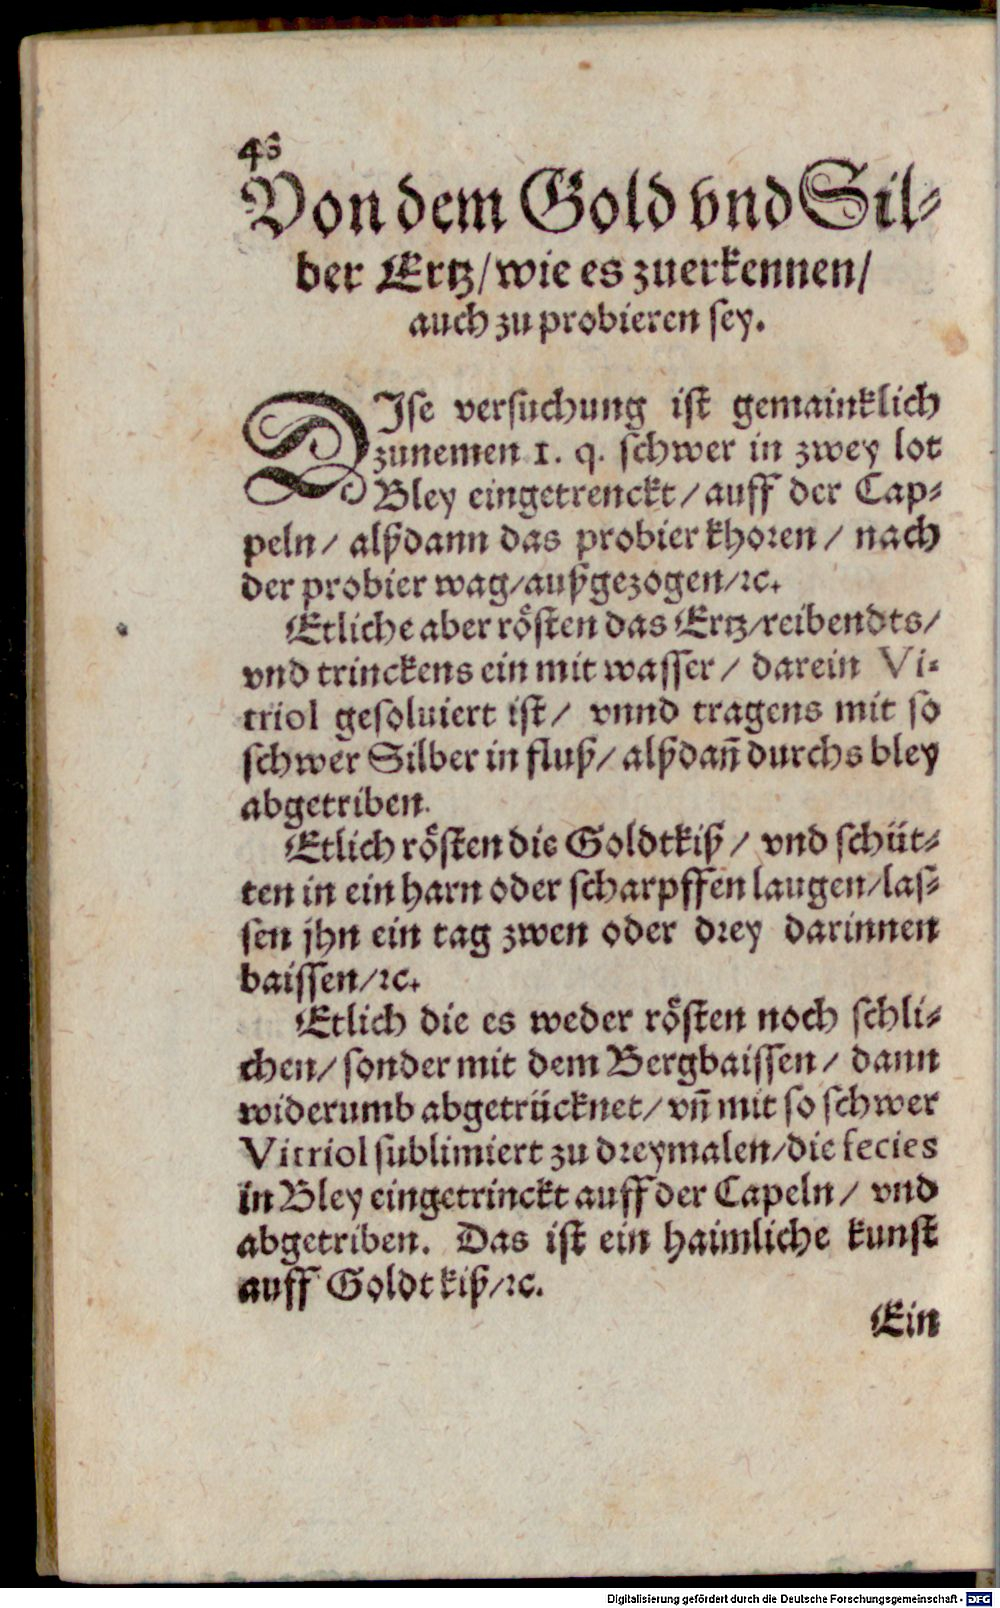 46
Von dem Gold vnd Sil⸗
ber Ertz/ wie es zuerkennen/
auch zu probieren sey.
DIse versuchung ist gemainklich
zunemen 1. q. schwer in zwey lot
Bley eingetrenckt/ auff der Cap⸗
peln/ alßdann das probier khoren/ nach
der probier wag/ außgezogen/ ꝛc.
Etliche aber rösten das Ertz/ reibendts/
vnd trinckens ein mit wasser/ darein Vi⸗
triol gesoluiert ist/ vnnd tragens mit so
schwer Silber in fluß/ alßdañ durchs bley
abgetriben.
Etlich rösten die Goldtkiß/ vnd schüt⸗
ten in ein harn oder scharpffen laugen/ las⸗
sen jhn ein tag zwen oder drey darinnen
baissen/ ꝛc.
Etlich die es weder rösten noch schli⸗
chen/ sonder mit dem Bergbaissen/ dann
widerumb abgetrücknet/ vñ mit so schwer
Vitriol sublimiert zu dreymalen/ die fecies
in Bley eingetrinckt auff der Capeln/ vnd
abgetriben. Das ist ein haimliche kunst
auff Goldt kiß/ ꝛc.
Ein
Digitalisierung gefördert durch die Deutsche Forschungsgemeinschaft - DFG